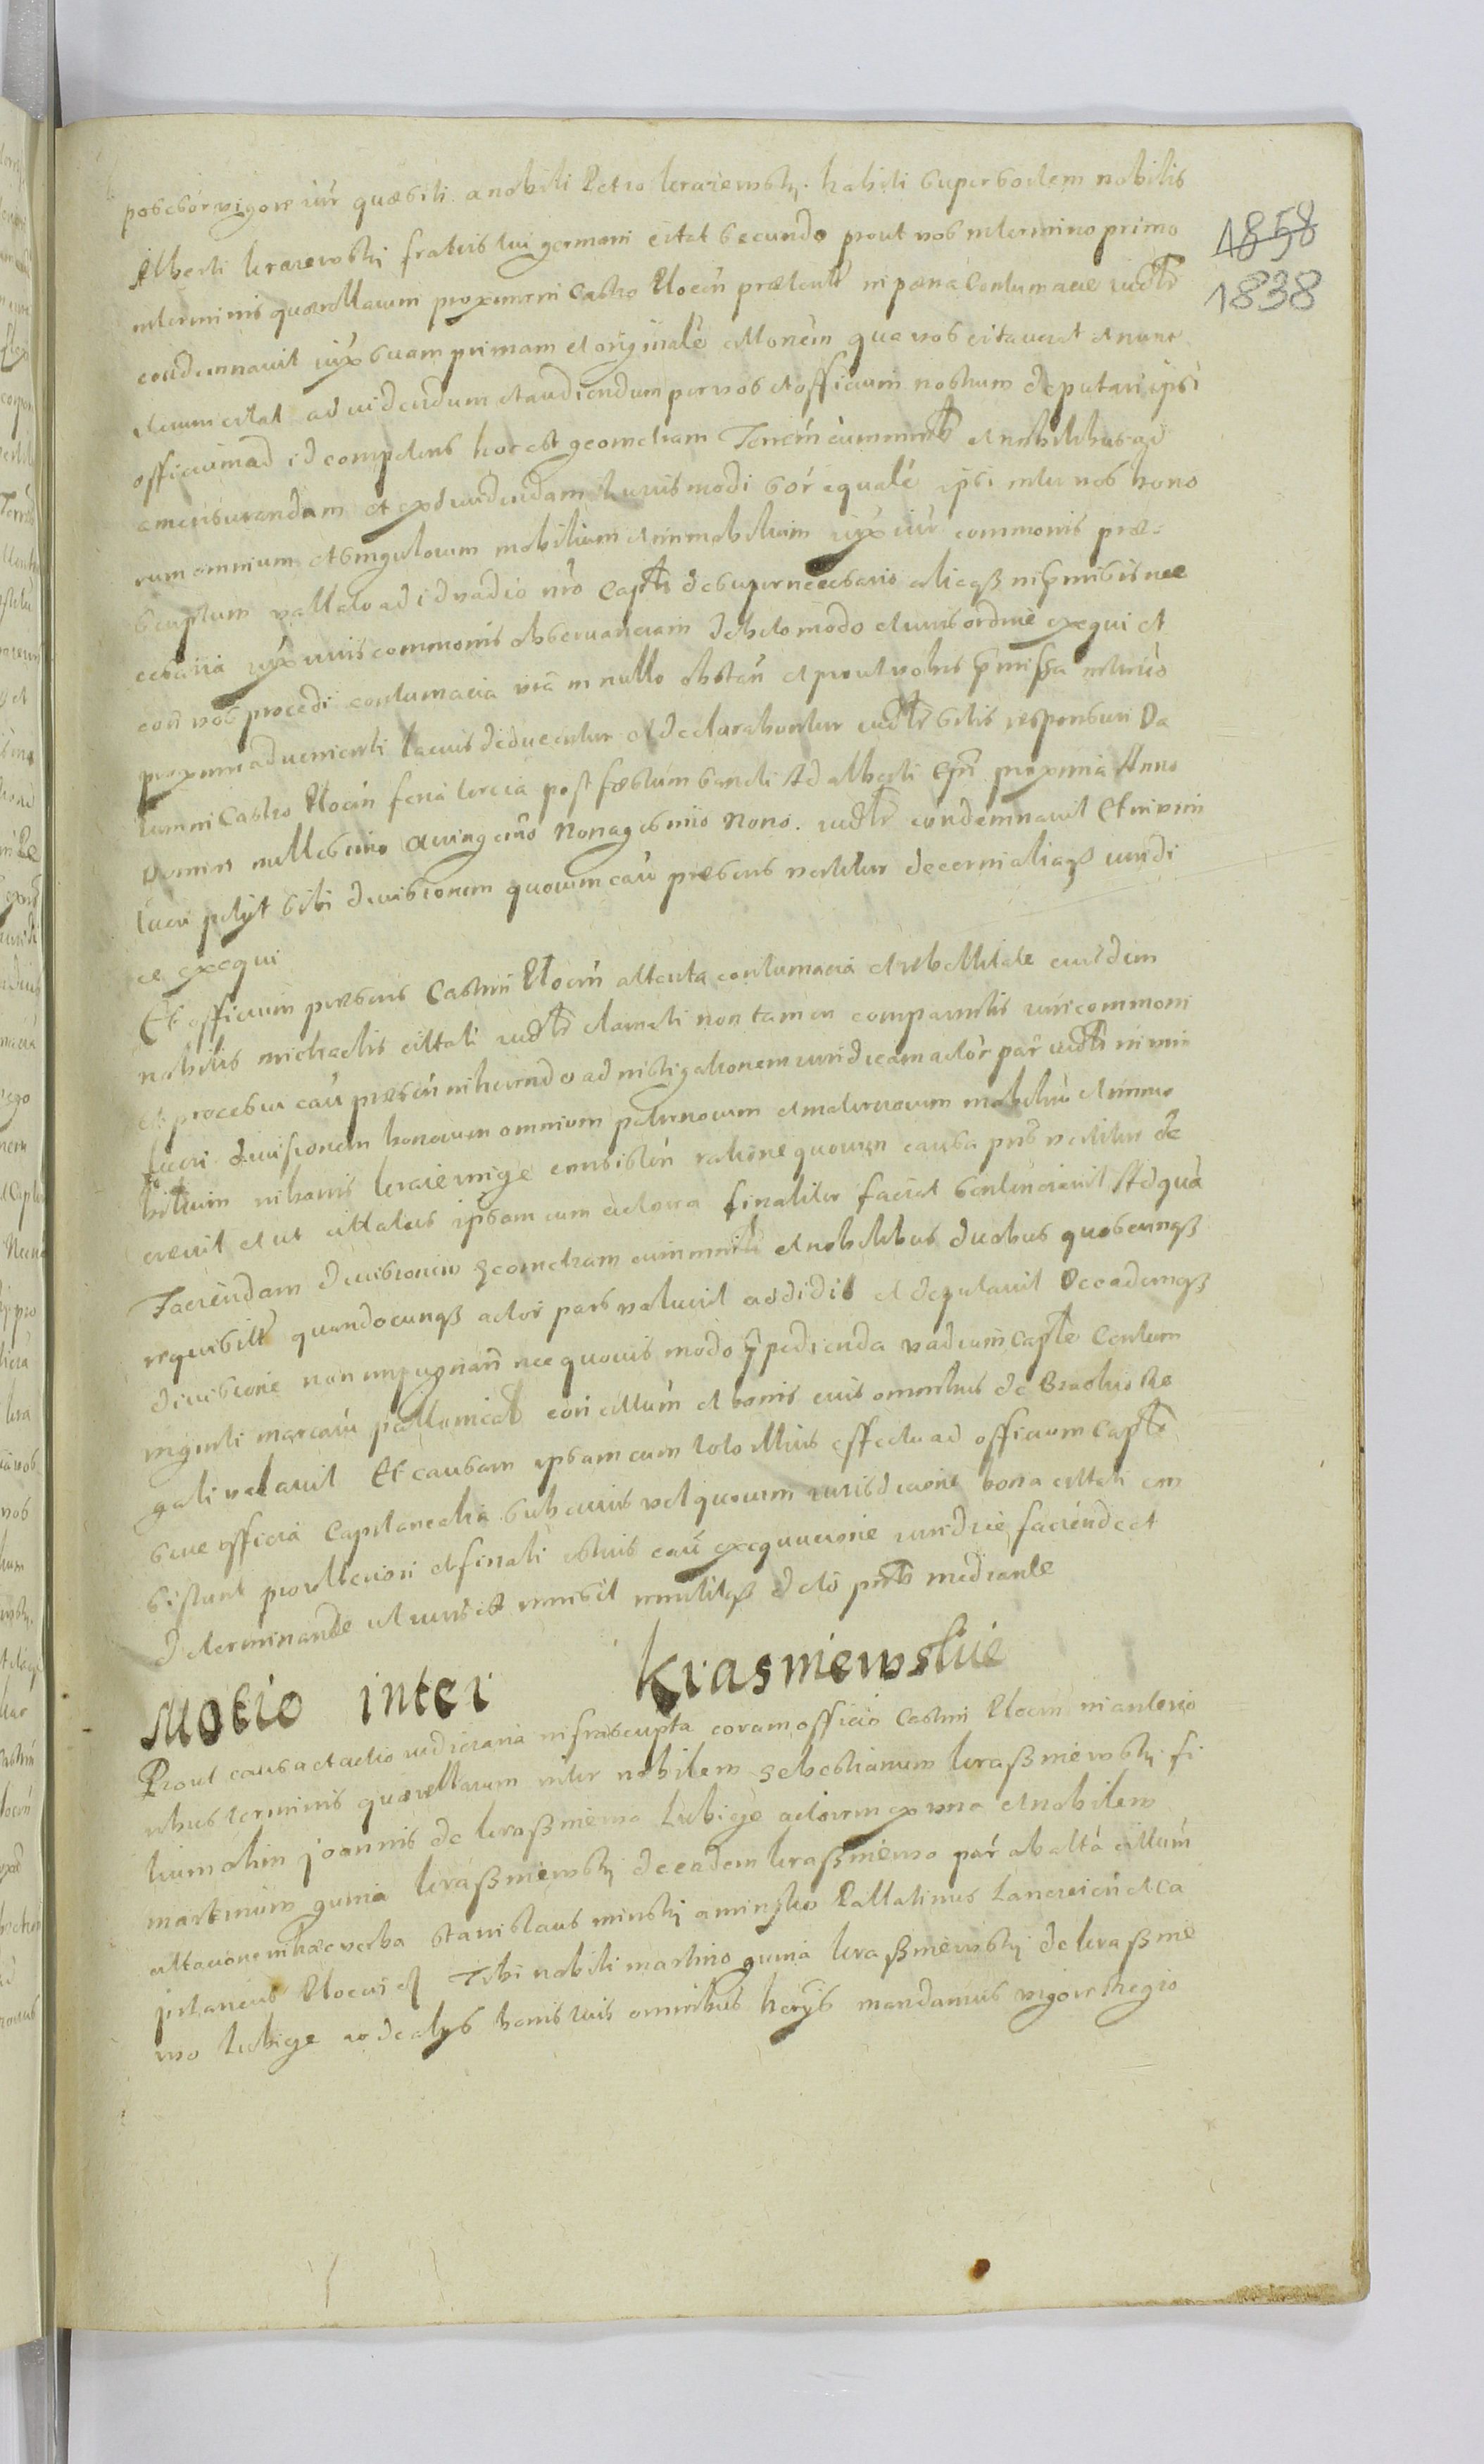 possessor vigore iur quaesiti a nobili Petro kraiewskj habiti super sortem nobilis
Alberti kraiewskj fratris tui germani citat secundo prout vos in termino primo
in terminis quaerellarum proximis in Castro Plocen praeterit in poena Contumaciae iudtr
condemnavit iux suam primam et originale actionem qua vos citaverat et nunc
iterum citat ad videndum et audiendum per vos et officium nostrum deputari ipsi
officium ad id competens hoc est geometram Terren cum minrli et nobilibus ad
amensurandam et extradendam huiusmodi sor equale ipsi inter vos bono
rum omnium et singulorum mobilium et immobilium iux iur communis prae-
scriptum vallato ad id vadio nro Captli desuper necessario aliaqß in pmissis nec
essaria iux iuris communis observanciam debito modo et iuris ordine exequi et
con vos procedi contumacia vra in nullo obstan et prout vobis pmissa in terminis
proxime advenienti lacius deducentur et declarabuntur iudtr sitis responsuri Da
tum in Castro Plocen feria tercia post festum sancti Adalberti Epi proxima Anno
Domini millesimo Quingenmo Nonagesimo Nono. iudtr condemnavit Et in vim
lucri petijt sibi divisionem quorum cau praesens vertitur decerni aliaqß iuridi
ce exequi
Et officium praesens Castren Plocen attenta contumacia et rebellitate eiusdem
nobilis michaelis cittati iudtr clamati non tamen comparentis iuri communi
et processui cau praesen inherendo ad instigationem iuridicam actor par iudtr in vim
lucri divisionem bonorum omnium paternorum et maternorum mobiliu et immo
bilium in bonis kraiewnige consisten ratione quorum causa pns vertitur de
crevit et ut cittatus ipsam cum actorea finaliter faciat sentenciavit Ad qua
Faciendam divisionem geometram cum minrli et nobilibus duobus quoscunqß
requisitt quandocunqß actor pars voluerit addidit et deputavit De eademqß
divisione non impugnan nec quovis modo jpedienda vadium Captle Centum
viginti marcaru pollonical con cittum et bonis eius omnibus de Brachio Re
gali vallavit Et causam ipsam cum toto illius effectu ad officium Captle
seu officia Capitanealia sub cuius vel quorum iurisdicione bona cittati con
sistunt pro ulteriori et finali istius cau exequucione iuridice faciende et
determinande ut iuris est remisit remittitqß dcto pntb mediante
Motio inter Krasniewskie
Prout causa et actio iudiciaria infrascripta coram officio Castren Plocen in anterio
ribus terminis quaerellarum inter nobilem Sebestianum kraßniewskj fi
lium olim joannis de kraßniewo Lubicze actorem ex una et nobilem
martinum gunia kraßniewskj de eadem kraßniewo par ab alta cittum
cittacione in haec verba Stanislaus minskj a minsko Pallatinus Lanciciensis et Ca
pitaneus Plocen et Tibi nobili martino gunia kraßniewskj de kraßnie
wo lubicze ac de alys bonis tuis omnibus horyb mandamus vigore Regio
1858
1838